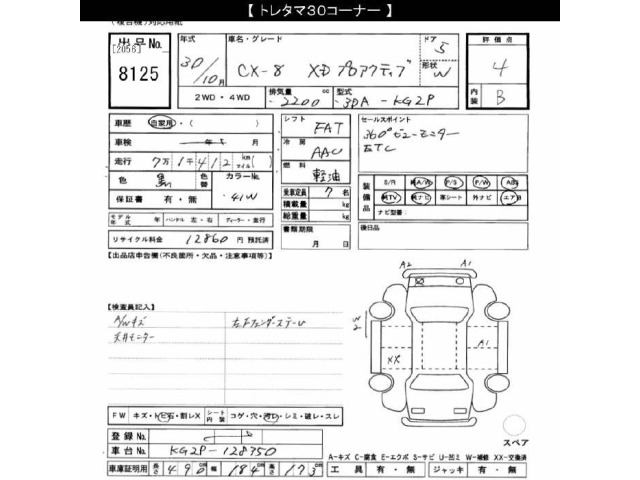 【 トレタマ30コーナー 】
(複合機)対応用紙
出品No. [2056] 8125
年式 30/10月
車名・グレード CX-8 XD プロアクティブ
ドア 5 形状 W
2WD・4WD 排気量 2200 cc 型式 3DA-KG2P
評価点 4
内装 B
車歴 自家用・( )
車検 年 月
走行 7万1千412 km マイル ( )
色 黒 色替 カラーNo. 41W
保証書 有・無
モデル年式 年 ハンドル 左・右 ディーラー・並行
リサイクル料金 12860 円 預託済
シフト FAT
冷房 AAC
燃料 軽油
乗車定員 7 名
積載量 kg
総重量 kg
書類期限 月 日
セールスポイント
360°ビューモニター
ETC
装備品 S/R A/W P/S P/W ABS
TV ナビ 革シート 外ナビ エアB
ナビ型番
後日品
【出品店申告欄(不良箇所・欠品・注意事項等)】
【検査員記入】
A/Wキズ
天井モニター
A2 A1
A1
W2
XX
FW キズ・ヒ石・割レX シート内装 コゲ・穴・汚レ・シミ・破レ・スレ
登録No.
車台No. KG2P-128350
車庫証明用 長さ 490 cm 幅 184 cm 高さ 173 cm
スペア
A-キズ C-腐食 E-エクボ S-サビ U-凹ミ W-補修 XX-交換済
工具 有・無 ジャッキ 有・無